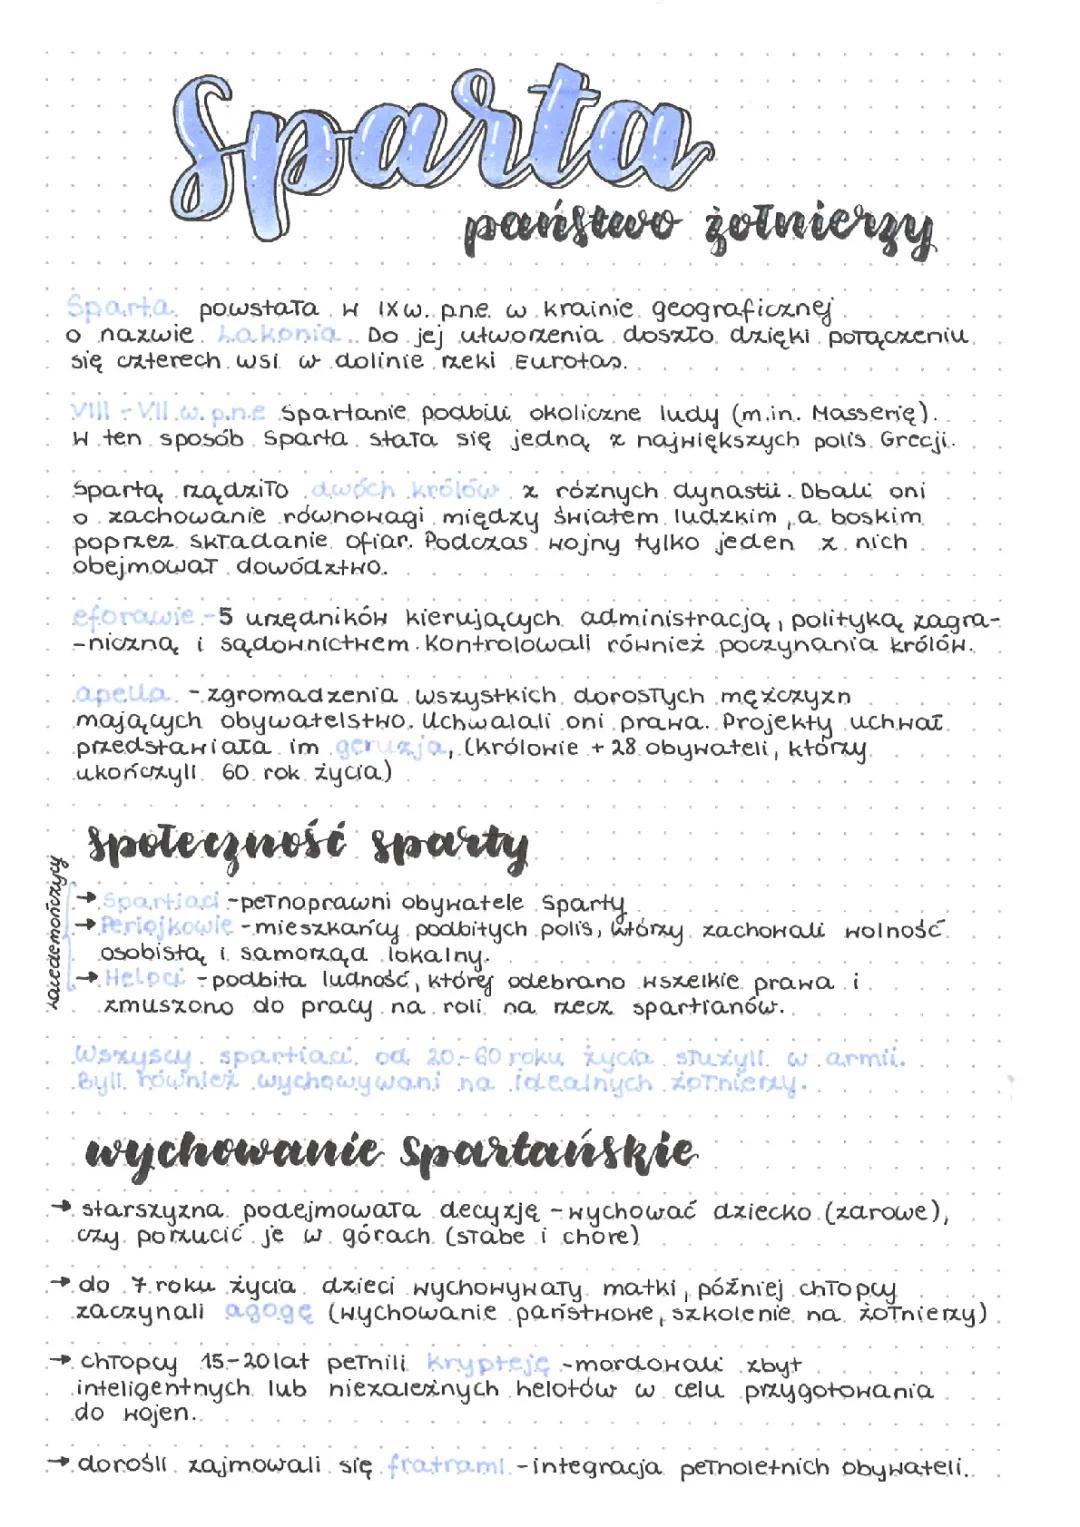 Sparta
państwo żołnierzy
Sparta powstała w IXw. p.n.e. w krainie geograficznej
o nazwie Lakonia. Do jej utworzenia doszło dzięki połączeniu
się czterech wsi w dolinie rzeki Eurotas.
VIII-VII w. p.n.e Spartanie podbili okoliczne ludy (m.in. Massenię).
W ten sposób Sparta stała się jedną z największych polis Grecji.
Spartą rządziło dwóch królów z różnych dynastii. Dbali oni
o zachowanie równowagi między światem ludzkim, a boskim
poprzez składanie ofiar. Podczas wojny tylko jeden z nich
obejmował dowództwo.
eforowie - 5 urzędników kierujących administracją, polityką zagra-
-niczną i sądownictwem. Kontrolowali również poczynania królów.
apella - zgromadzenia wszystkich dorosłych mężczyzn
mających obywatelstwo. Uchwalali oni prawa. Projekty uchwał
przedstawiała im geruzja, (królowie + 28 obywateli, którzy
ukończyli 60 rok życia)
społeczność sparty
Lacedemończycy
→ Spartiaci - pełnoprawni obywatele Sparty
→ Periojkowie - mieszkańcy podbitych polis, którzy zachowali wolność
osobistą i samorząd lokalny.
→ Heloci - podbita ludność, której odebrano wszelkie prawa i
zmuszono do pracy na roli na rzecz spartianów.
Wszyscy spartiaci od 20-60 roku życia służyli w armii.
Byli również wychowywani na idealnych żołnierzy.
wychowanie spartańskie
→ starszyzna podejmowała decyzję - wychować dziecko (zdrowe),
czy porzucić je w górach (słabe i chore)
→ do 7 roku życia dzieci wychowywały matki, później chłopcy
zaczynali agogę (wychowanie państwowe, szkolenie na żołnierzy)
→ chłopcy 15-20 lat pełnili krypteję - mordowali zbyt
inteligentnych lub niezależnych helotów w celu przygotowania
do wojen.
→ dorośli zajmowali się fratrami - integracja pełnoletnich obywateli.